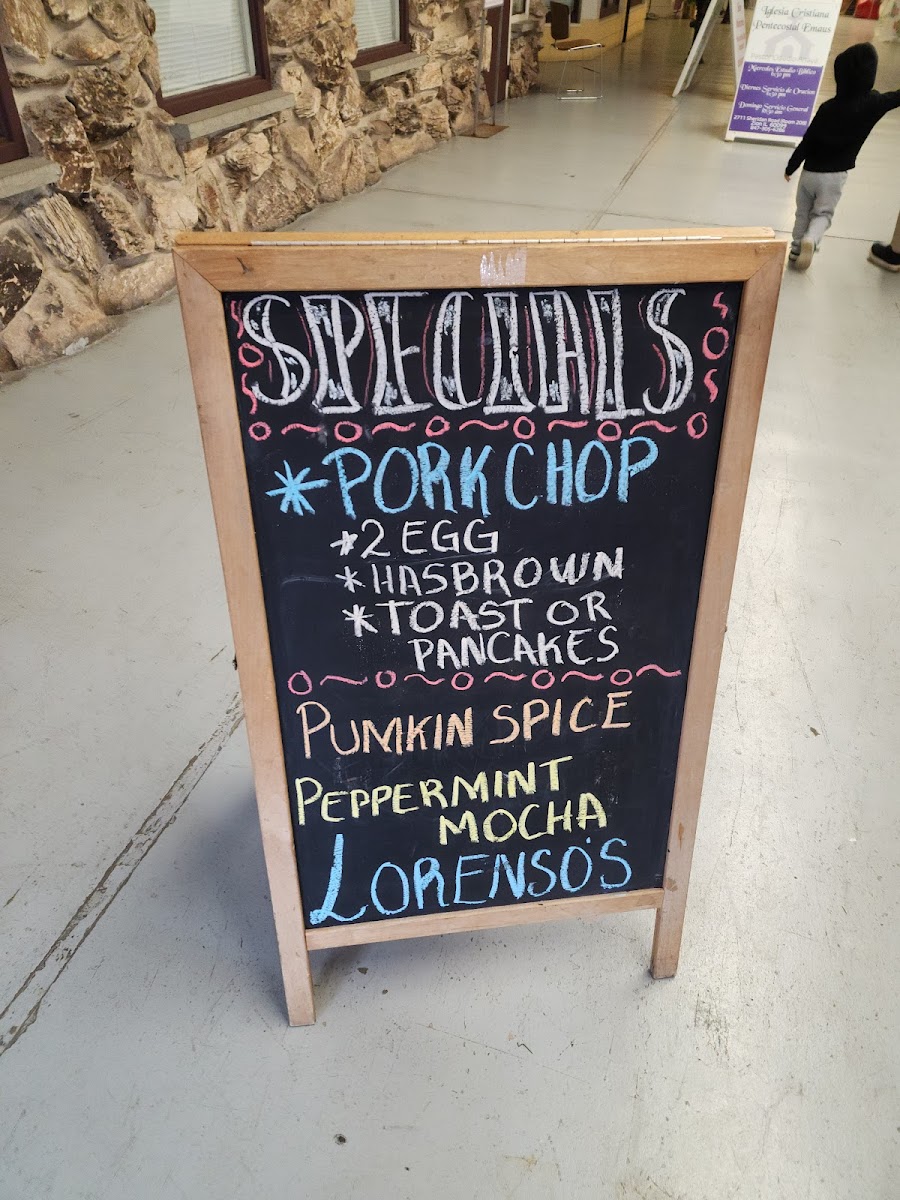 Iglesia Cristiana
Pentecostal Emaus
Miercoles Estudio Biblico
6:30 pm
Viernes Servicio de Oracion
6:30 pm
Domingo Servicio General
2711 Sheridan Road Room 208
Zion IL 60099
SPECIALS
*PORK CHOP
*2 EGG
*HASBROWN
*TOAST OR
PANCAKES
PUMKIN SPICE
PEPPERMINT
MOCHA
LORENSO'S